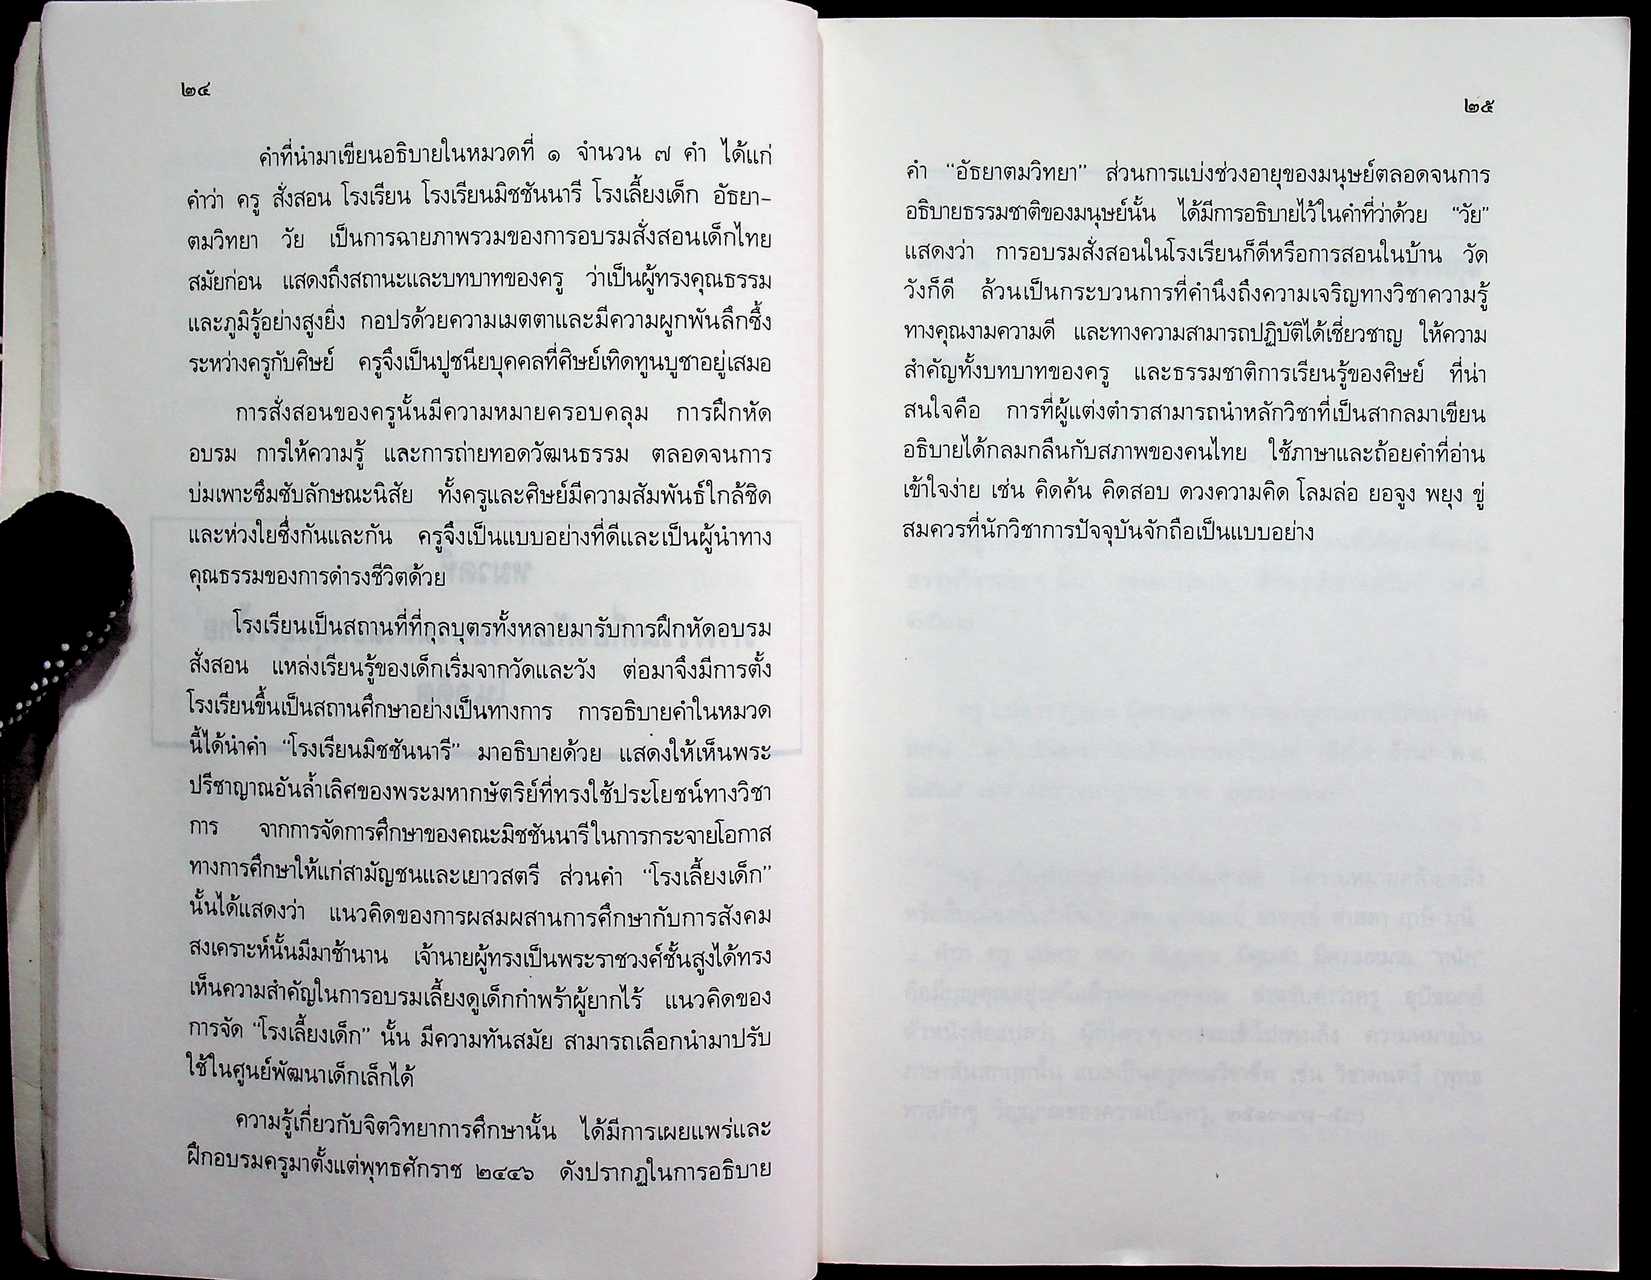 ๒๔
คำที่นำมาเขียนอธิบายในหมวดที่ ๑ จำนวน ๗ คำ ได้แก่
คำว่า ครู สั่งสอน โรงเรียน โรงเรียนมิชชันนารี โรงเลี้ยงเด็ก อัธยา-
ตมวิทยา วัย เป็นการฉายภาพรวมของการอบรมสั่งสอนเด็กไทย
สมัยก่อน แสดงถึงสถานะและบทบาทของครู ว่าเป็นผู้ทรงคุณธรรม
และภูมิรู้อย่างสูงยิ่ง กอปรด้วยความเมตตาและมีความผูกพันลึกซึ้ง
ระหว่างครูกับศิษย์ ครูจึงเป็นปูชนียบุคคลที่ศิษย์เทิดทูนบูชาอยู่เสมอ
การสั่งสอนของครูนั้นมีความหมายครอบคลุม การฝึกหัด
อบรม การให้ความรู้ และการถ่ายทอดวัฒนธรรม ตลอดจนการ
บ่มเพาะซึมซับลักษณะนิสัย ทั้งครูและศิษย์มีความสัมพันธ์ใกล้ชิด
และห่วงใยซึ่งกันและกัน ครูจึงเป็นแบบอย่างที่ดีและเป็นผู้นำทาง
คุณธรรมของการดำรงชีวิตด้วย
โรงเรียนเป็นสถานที่ที่กุลบุตรทั้งหลายมารับการฝึกหัดอบรม
สั่งสอน แหล่งเรียนรู้ของเด็กเริ่มจากวัดและวัง ต่อมาจึงมีการตั้ง
โรงเรียนขึ้นเป็นสถานศึกษาอย่างเป็นทางการ การอธิบายคำในหมวด
นี้ได้นำคำ "โรงเรียนมิชชันนารี" มาอธิบายด้วย แสดงให้เห็นพระ
ปรีชาญาณอันล้ำเลิศของพระมหากษัตริย์ที่ทรงใช้ประโยชน์ทางวิชา
การ จากการจัดการศึกษาของคณะมิชชันนารีในการกระจายโอกาส
ทางการศึกษาให้แก่สามัญชนและเยาวสตรี ส่วนคำ "โรงเลี้ยงเด็ก"
นั้นได้แสดงว่า แนวคิดของการผสมผสานการศึกษากับการสังคม
สงเคราะห์นั้นมีมาช้านาน เจ้านายผู้ทรงเป็นพระราชวงศ์ชั้นสูงได้ทรง
เห็นความสำคัญในการอบรมเลี้ยงดูเด็กกำพร้าผู้ยากไร้ แนวคิดของ
การจัด "โรงเลี้ยงเด็ก" นั้น มีความทันสมัย สามารถเลือกนำมาปรับ
ใช้ในศูนย์พัฒนาเด็กเล็กได้
ความรู้เกี่ยวกับจิตวิทยาการศึกษานั้น ได้มีการเผยแพร่และ
ฝึกอบรมครูมาตั้งแต่พุทธศักราช ๒๔๔๖ ดังปรากฏในการอธิบาย
๒๕
คำ "อัธยาตมวิทยา" ส่วนการแบ่งช่วงอายุของมนุษย์ตลอดจนการ
อธิบายธรรมชาติของมนุษย์นั้น ได้มีการอธิบายไว้ในคำที่ว่าด้วย "วัย"
แสดงว่า การอบรมสั่งสอนในโรงเรียนก็ดีหรือการสอนในบ้าน วัด
วังก็ดี ล้วนเป็นกระบวนการที่คำนึงถึงความเจริญทางวิชาความรู้
ทางคุณงามความดี และทางความสามารถปฏิบัติได้เชี่ยวชาญ ให้ความ
สำคัญทั้งบทบาทของครู และธรรมชาติการเรียนรู้ของศิษย์ ที่น่า
สนใจคือ การที่ผู้แต่งตำราสามารถนำหลักวิชาที่เป็นสากลมาเขียน
อธิบายได้กลมกลืนกับสภาพของคนไทย ใช้ภาษาและถ้อยคำที่อ่าน
เข้าใจง่าย เช่น คิดค้น คิดสอบ ดวงความคิด โลมล่อ ยอจูง พยุง ขู่
สมควรที่นักวิชาการปัจจุบันจักถือเป็นแบบอย่าง